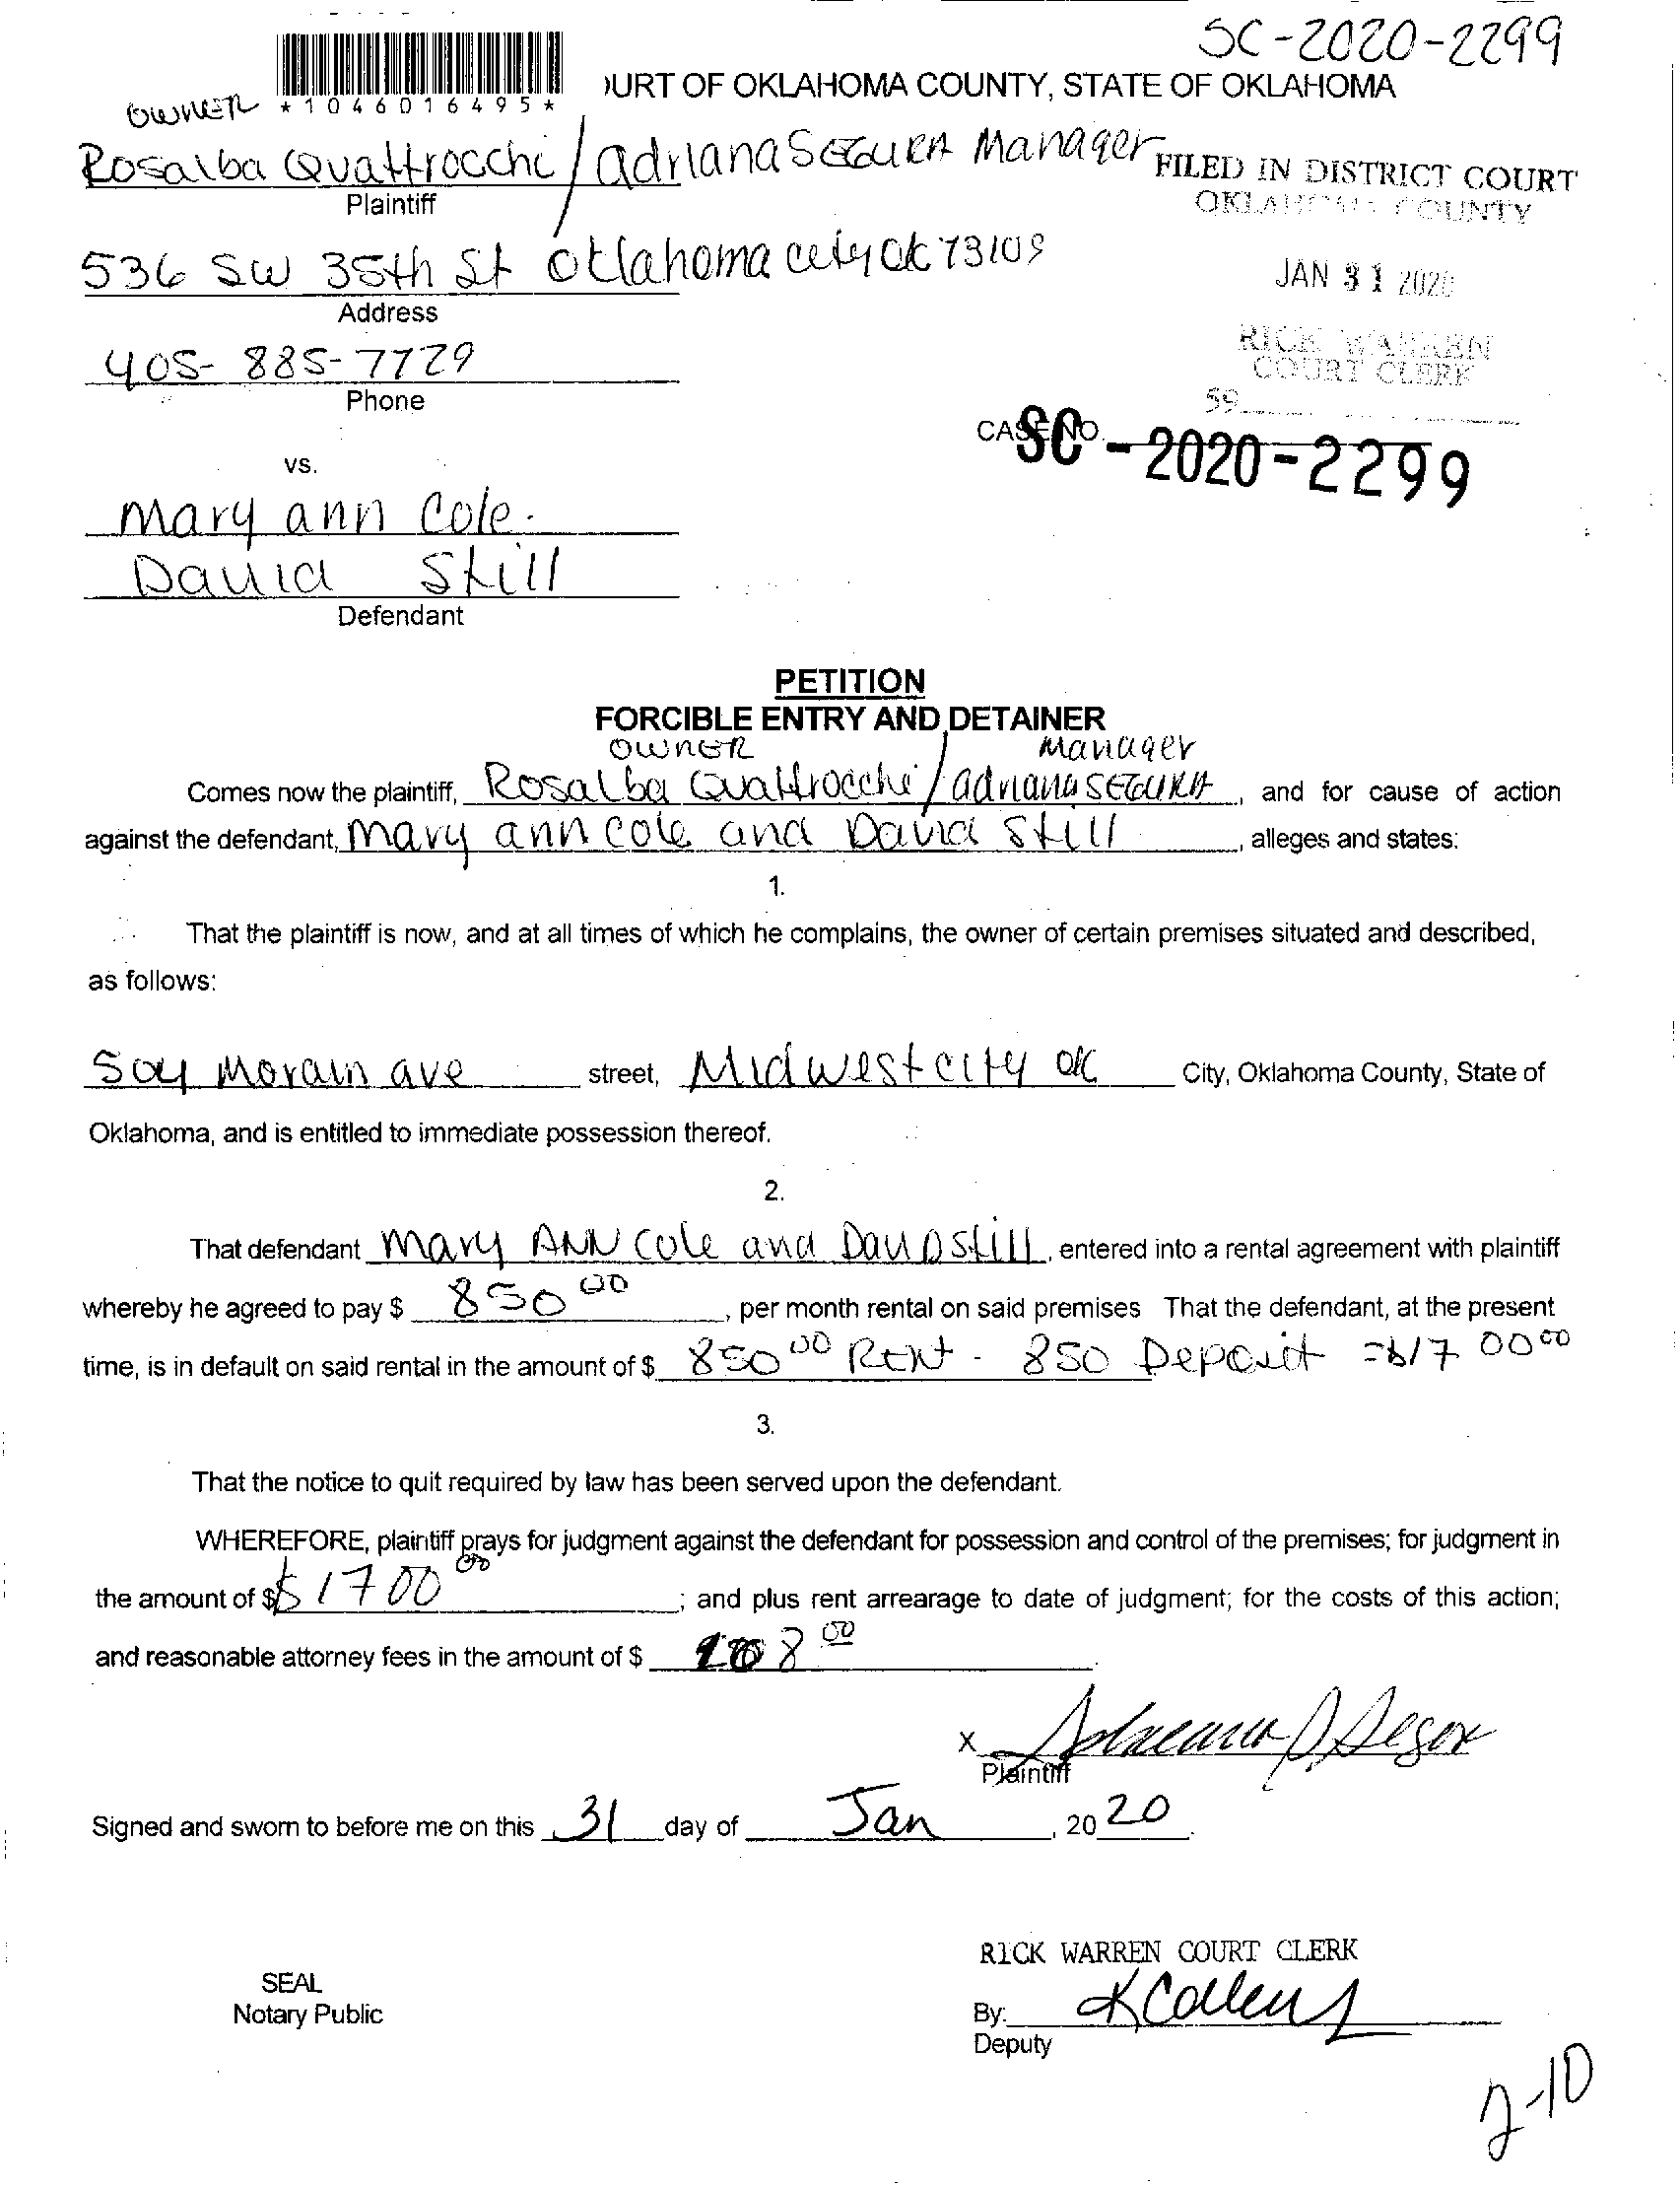 SC-2020-2299
*1046016495*
)URT OF OKLAHOMA COUNTY, STATE OF OKLAHOMA
OWNER
Rosalba Quattrocchi / adriana SEGURA Manager
Plaintiff
FILED IN DISTRICT COURT
OKLAHOMA COUNTY
536 SW 35th St Oklahoma city ok 73109
Address
JAN 31 2020
405-885-7729
Phone
RICK WARREN
COURT CLERK
59
CASE NO.
SC-2020-2299
vs.
Mary ann Cole.
David Still
Defendant
PETITION
FORCIBLE ENTRY AND DETAINER
OWNER Manager
Comes now the plaintiff, Rosalba Quattrocchi / adriana SEGURA, and for cause of action
against the defendant, Mary ann Cole and David Still, alleges and states:
1.
That the plaintiff is now, and at all times of which he complains, the owner of certain premises situated and described,
as follows:
Morain ave street, Midwest city ok City, Oklahoma County, State of
Oklahoma, and is entitled to immediate possession thereof.
2.
That defendant Mary ANN Cole and David Still, entered into a rental agreement with plaintiff
whereby he agreed to pay $ 850 00, per month rental on said premises That the defendant, at the present
time, is in default on said rental in the amount of $ 850 00 Rent - 850 Deposit = $1700 00
3.
That the notice to quit required by law has been served upon the defendant.
WHEREFORE, plaintiff prays for judgment against the defendant for possession and control of the premises; for judgment in
the amount of $ $1700 00; and plus rent arrearage to date of judgment; for the costs of this action;
and reasonable attorney fees in the amount of $ 00
X
Plaintiff
Signed and sworn to before me on this 31 day of Jan, 20 20.
RICK WARREN COURT CLERK
SEAL
Notary Public
By:
Deputy
2-10